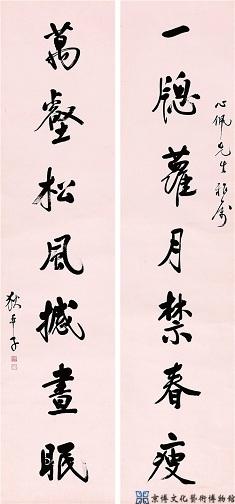 心佩先生雅属
一窗蘿月禁春瘦
萬壑松風撼晝眠
狄平子
京博文化藝術博物館